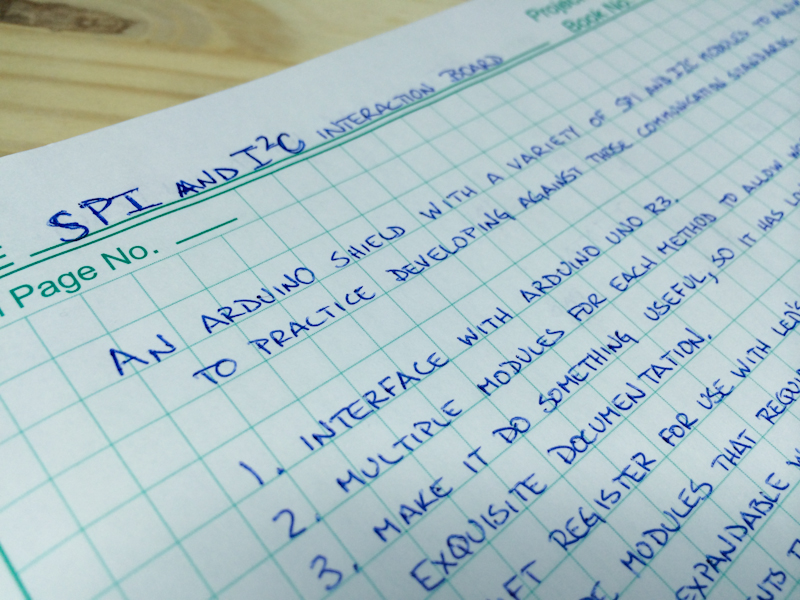 Project
Book No.
E SPI AND I²C INTERACTION BOARD
Page No.
AN ARDUINO SHIELD WITH A VARIETY OF SPI AND I2C MODULES TO ALLOW
TO PRACTICE DEVELOPING AGAINST THOSE COMMUNICATION STANDARDS.
1. INTERFACE WITH ARDUINO UNO R3.
2. MULTIPLE MODULES FOR EACH METHOD TO ALLOW
3. MAKE IT DO SOMETHING USEFUL, SO IT HAS
EXQUISITE DOCUMENTATION.
FT REGISTER FOR USE WITH LED'S
MODULES THAT REQUI
EXPANDABLE